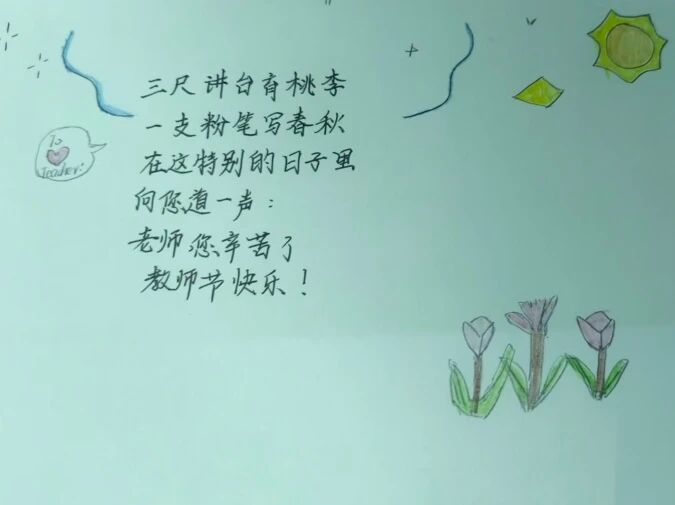 三尺讲台育桃李
一支粉笔写春秋
在这特别的日子里
向您道一声：
老师,您辛苦了
教师节快乐！
To
Teacher: